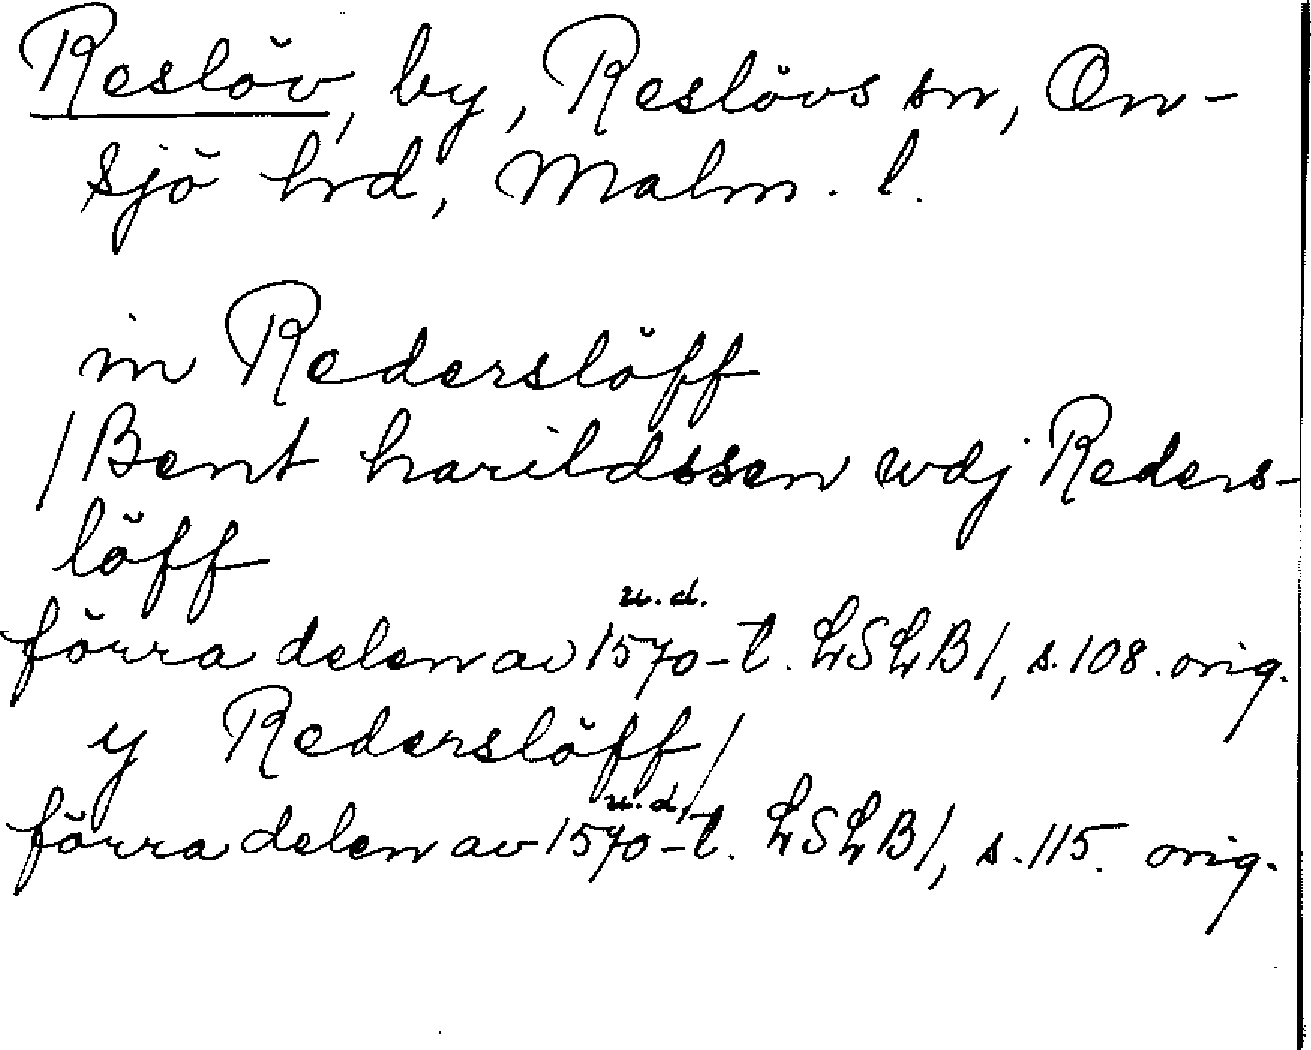 Reslöv, by, Reslövs sn, On-
sjö hrd, Malm. l.
in Rederslöff
/Bent harildssen wdj Reders-
löff
u.d.
förra delen av 1570-t. LSLB/, s.108. orig.
y Rederslöff/
u.d.
förra delen av 1570-t. LSLB/, s.115. orig.